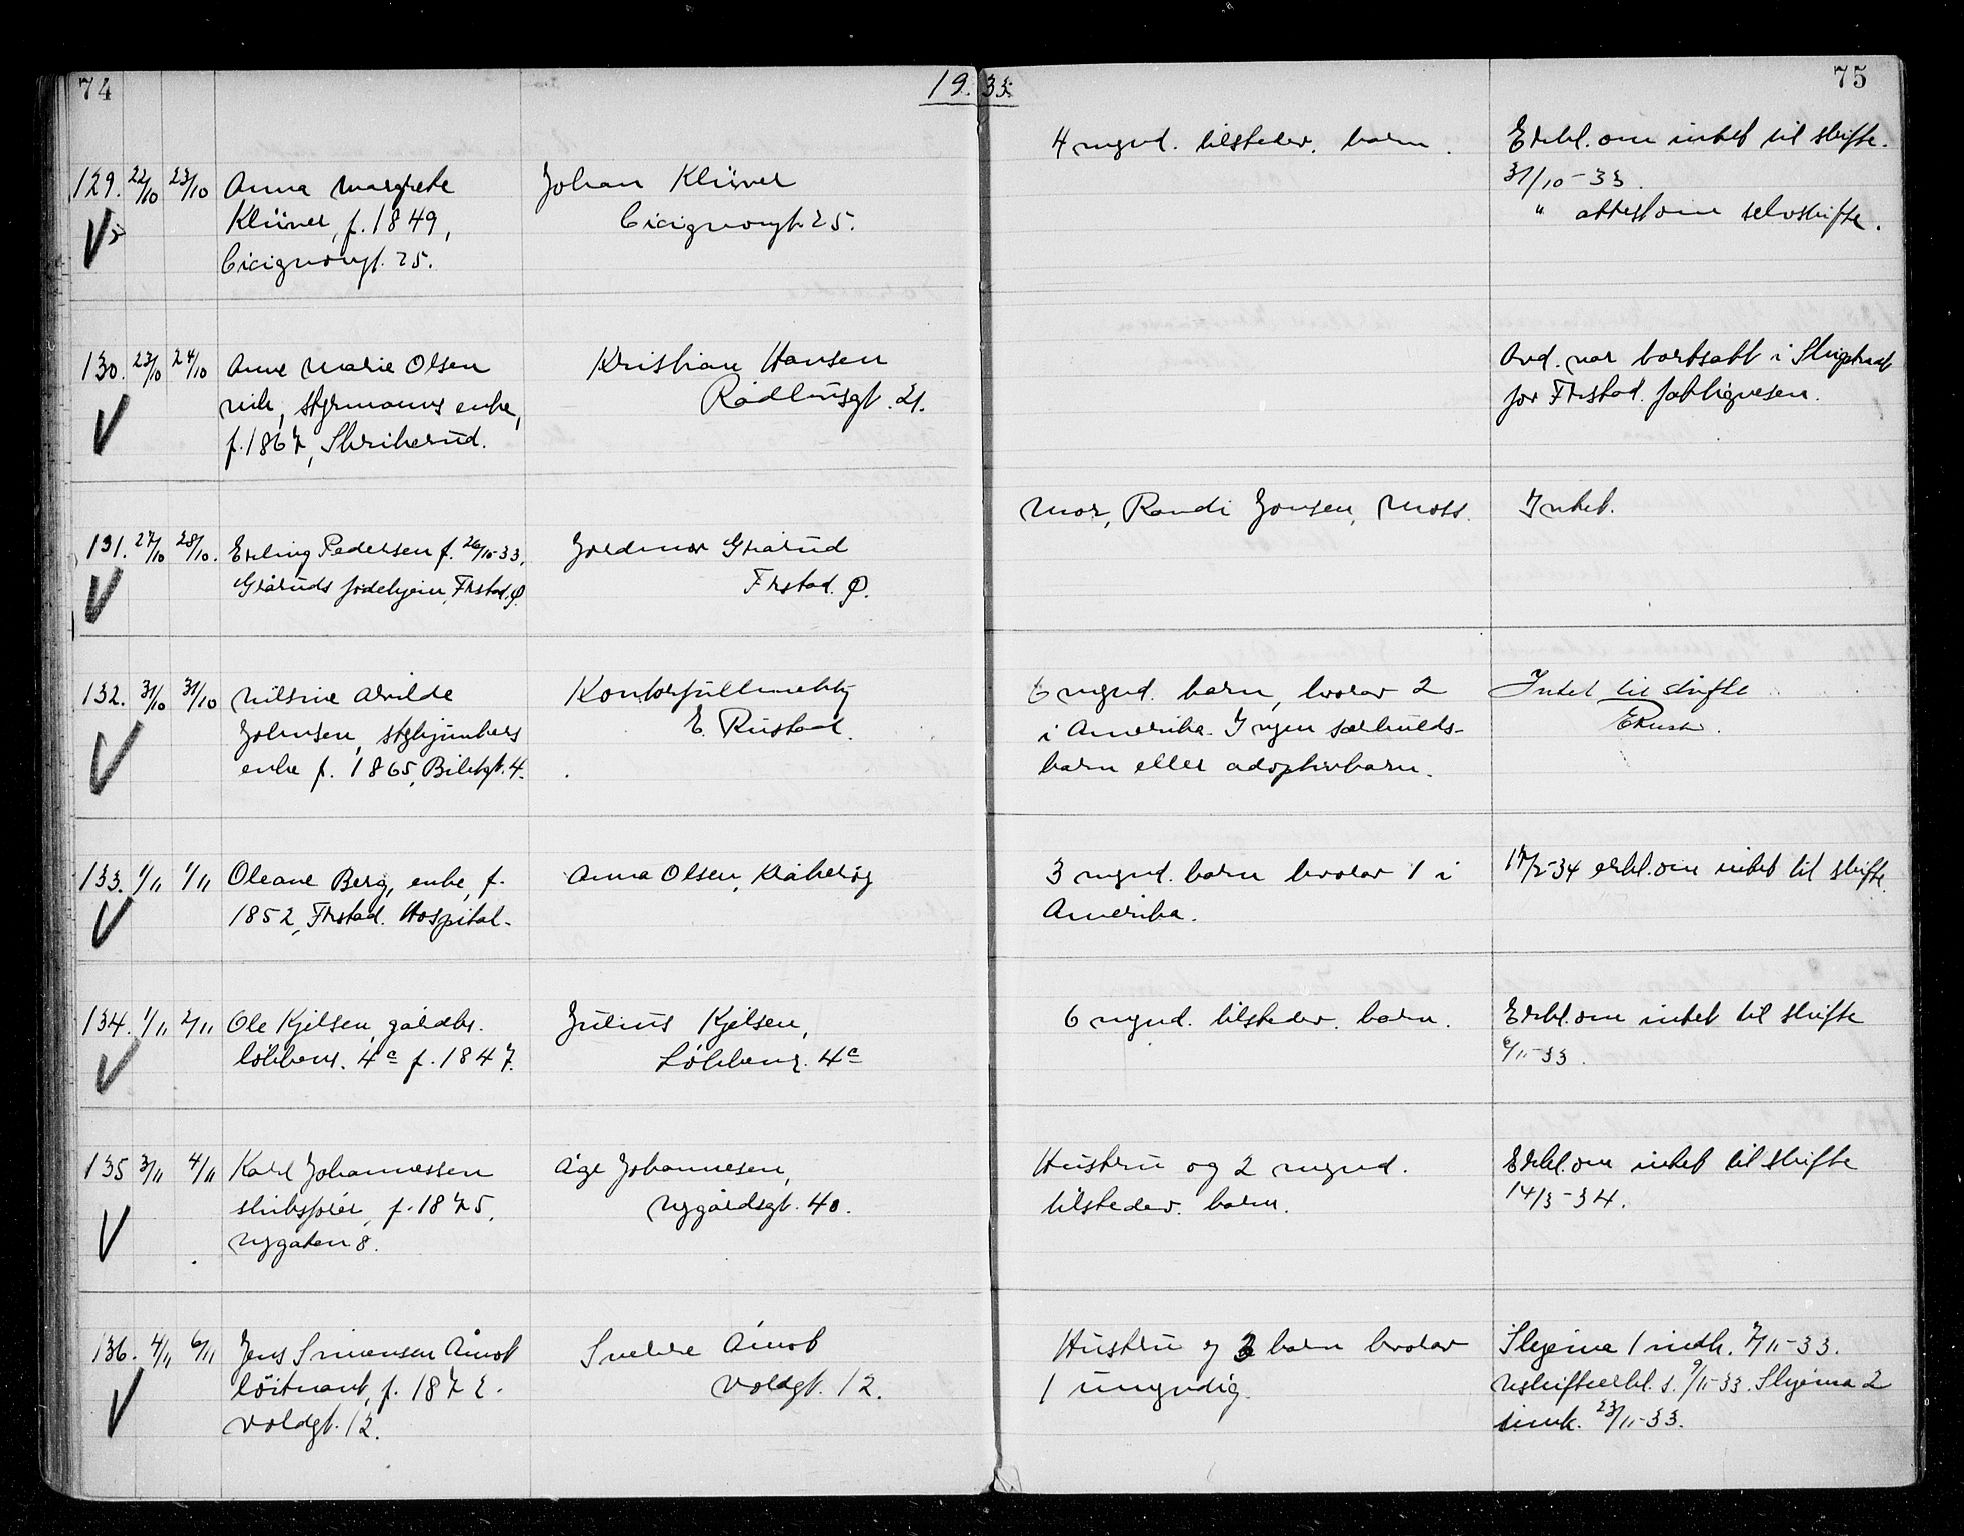 74
1933.
75
129. 22/10 23/10 Anna Margrete Johan Klüver 4 mynd. tilstedev. barn. Erkl. om intet til skifte.
Klüver, f. 1849, Cicignongt. 25. 31/10-33.
Cicignongt. 25. " attest om selvskifte.
130. 23/10 24/10 Anne Marie Olsen Kristian Hansen Avd. var bortsatt i
vik, styrmanns enke, Rådhusgt. 21. for Frstad. fattigvesen.
f. 1867, Skrikerud.
131. 27/10 28/10. Erling Pedersen f. 26/10-33, Grårud Mor, Randi Jonsen, Moss. Intet.
Gråruds fødehjem, Frstad. Ø. Frstad. Ø.
132. 31/10 31/10 Nilsine Alvilde Kontorfullmektig 6 mynd. barn, hvorav 2 Intet til skifte
Johnsen, enke f. 1865, Biletgt. 4. E. Rustad. i Amerika. Ingen særkulds-
barn eller adoptivbarn.
133. 1/11 1/11 Oleane Berg, enke, f. Anna Olsen, Kråkerøy 3 mynd. barn hvorav 1 i 17/2-34 erkl. om intet til skifte.
1852, Frstad. Hospital. Amerika.
134. 1/11 2/11 Ole Kjelsen, gårdbr. Julius Kjelsen, 6 mynd. tilstedev. barn. Erkl. om intet til skifte
Løkkeng. 4c f. 1847. Løkkeng. 4c 6/11-33.
135 3/11 4/11 Karl Johannessen Åge Johannesen, Hustru og 2 mynd. Erkl. om intet til skifte
skibsfører, f. 1875, Nygårdsgt. 40. tilstedev. barn. 14/3-34.
Nygaten 8.
136. 4/11 6/11 Jens Simensen Åmot Sverre Åmot Hustru og 3 barn hvorav Skjema 1 indk. 7/11-33.
löitnant, f. 1872. Voldgt. 12. 1 umyndig. Uskifteerkl. s. 9/11-33. Skjema 2
Voldgt. 12. innk. 23/11-33.